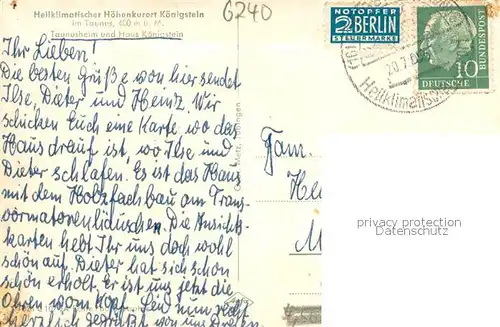 Heilklimatischer Höhenkurort Königstein
im Taunus, 400 m ü. M.
Taunusheim und Haus Königstein
6240
Ihr Lieben!
Die besten Grüße von hier sendet
Ilse, Dieter und Heinz. Wir
schicken Euch eine Karte wo das
Haus drauf ist, wo Ilse und
Dieter schlafen. Es ist das Haus
mit dem Holzfachbau am
Die Ansichts-
karten hebt Ihr uns doch wohl
schön auf. Dieter hat sich schon
schön erholt. Er ist uns jetzt die
Ohren vom Kopf. Seid nun recht
herzlich gegrüßt von uns Dreien
Metz, Tübingen
NOTOPFER
2 BERLIN
STEUERMARKE
20.7.
Heilklimatisch
10
DEUTSCHE
BUNDESPOST
Fam.
privacy protection
Datenschutz